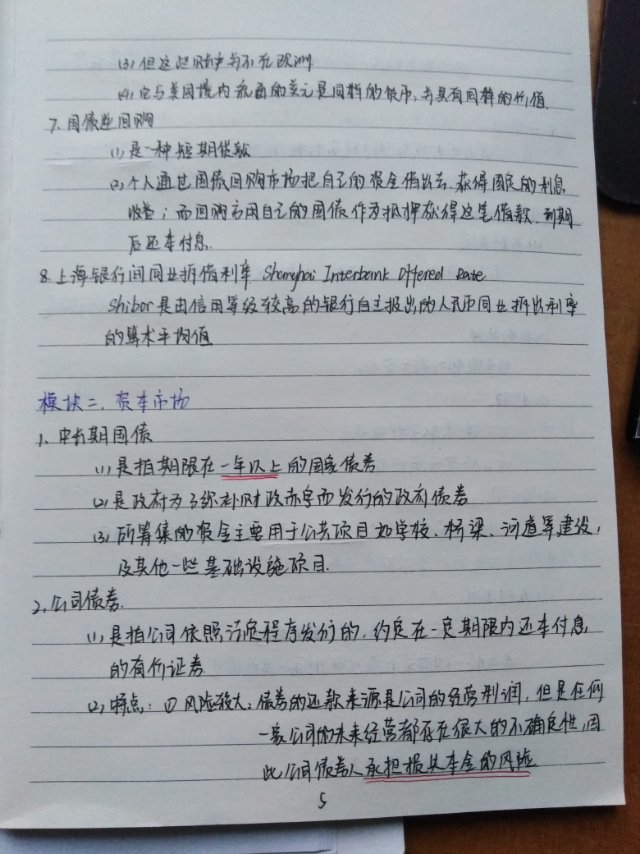 (3) 但这些账户并不在欧洲
(4) 它与美国境内流通的美元是同样的货币,并具有同样的价值
7. 国债逆回购
(1) 是一种短期贷款
(2) 个人通过国债回购市场把自己的资金借出去,获得固定的利息
收益;而回购方用自己的国债作为抵押获得这笔借款,到期
后还本付息.
8. 上海银行间同业拆借利率 Shanghai Interbank Offered Rate
Shibor是由信用等级较高的银行自主报出的人民币同业拆出利率
的算术平均值
模块二、资本市场
1. 中长期国债
(1) 是指期限在一年以上的国家债券
(2) 是政府为了弥补财政赤字而发行的政府债券
(3) 所筹集的资金主要用于公共项目如学校、桥梁、河道等建设,
及其他一些基础设施项目.
2. 公司债券.
(1) 是指公司依照法定程序发行的,约定在一定期限内还本付息
的有价证券
(2) 特点: ① 风险较大: 债券的还款来源是公司的经营利润,但是任何
一家公司的未来经营都存在很大的不确定性,因
此公司债券人承担损失本金的风险
5